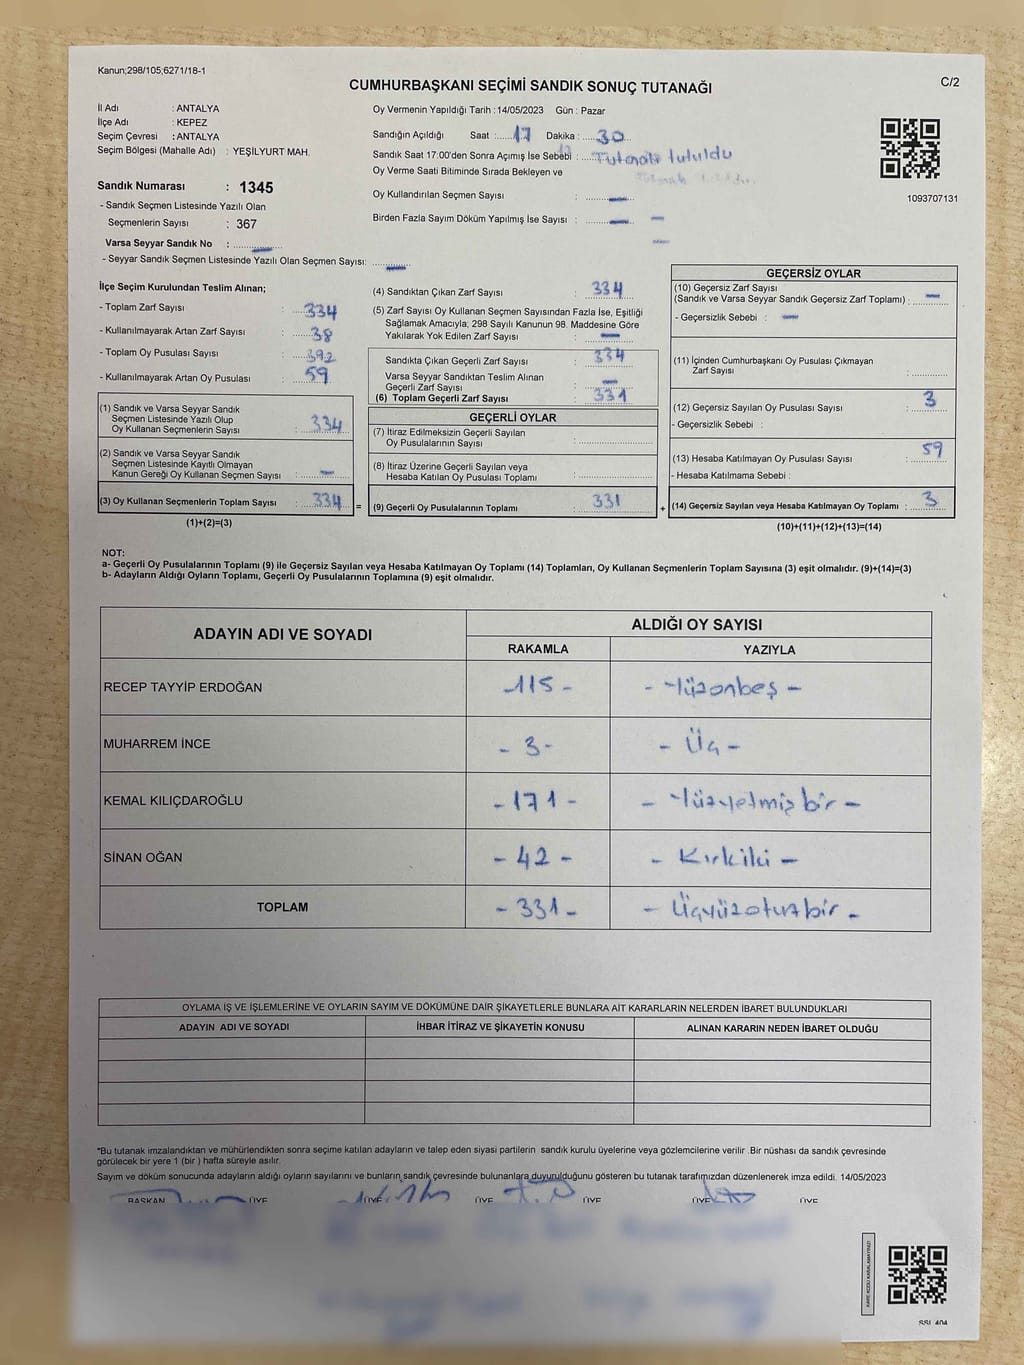 Kanun;298/105;6271/18-1
CUMHURBAŞKANI SEÇİMİ SANDIK SONUÇ TUTANAĞI
C/2
İl Adı : ANTALYA
İlçe Adı : KEPEZ
Seçim Çevresi : ANTALYA
Seçim Bölgesi (Mahalle Adı) : YEŞİLYURT MAH.
Sandık Numarası : 1345
- Sandık Seçmen Listesinde Yazılı Olan
Seçmenlerin Sayısı : 367
Varsa Seyyar Sandık No : —
- Seyyar Sandık Seçmen Listesinde Yazılı Olan Seçmen Sayısı: —
Oy Vermenin Yapıldığı Tarih : 14/05/2023 Gün : Pazar
Sandığın Açıldığı Saat : 17 Dakika : 30
Sandık Saat 17:00'den Sonra Açımış İse Sebebi : Tutanak tutuldu
Oy Verme Saati Bitiminde Sırada Bekleyen ve
Oy Kullandırılan Seçmen Sayısı : —
Birden Fazla Sayım Döküm Yapılmış İse Sayısı : —
1093707131
İlçe Seçim Kurulundan Teslim Alınan;
- Toplam Zarf Sayısı : 334
- Kullanılmayarak Artan Zarf Sayısı : 38
- Toplam Oy Pusulası Sayısı : 392
- Kullanılmayarak Artan Oy Pusulası : 59
(1) Sandık ve Varsa Seyyar Sandık
Seçmen Listesinde Yazılı Olup
Oy Kullanan Seçmenlerin Sayısı : 334
(2) Sandık ve Varsa Seyyar Sandık
Seçmen Listesinde Kayıtlı Olmayan
Kanun Gereği Oy Kullanan Seçmen Sayısı : —
(3) Oy Kullanan Seçmenlerin Toplam Sayısı : 334 =
(1)+(2)=(3)
(4) Sandıktan Çıkan Zarf Sayısı : 334
(5) Zarf Sayısı Oy Kullanan Seçmen Sayısından Fazla İse, Eşitliği
Sağlamak Amacıyla; 298 Sayılı Kanunun 98. Maddesine Göre
Yakılarak Yok Edilen Zarf Sayısı : —
Sandıkta Çıkan Geçerli Zarf Sayısı : 334
Varsa Seyyar Sandıktan Teslim Alınan
Geçerli Zarf Sayısı : —
(6) Toplam Geçerli Zarf Sayısı : 331
GEÇERLİ OYLAR
(7) İtiraz Edilmeksizin Geçerli Sayılan
Oy Pusulalarının Sayısı :
(8) İtiraz Üzerine Geçerli Sayılan veya
Hesaba Katılan Oy Pusulası Toplamı :
(9) Geçerli Oy Pusulalarının Toplamı : 331 +
GEÇERSİZ OYLAR
(10) Geçersiz Zarf Sayısı
(Sandık ve Varsa Seyyar Sandık Geçersiz Zarf Toplamı) : —
- Geçersizlik Sebebi : —
(11) İçinden Cumhurbaşkanı Oy Pusulası Çıkmayan
Zarf Sayısı :
(12) Geçersiz Sayılan Oy Pusulası Sayısı : 3
- Geçersizlik Sebebi :
(13) Hesaba Katılmayan Oy Pusulası Sayısı : 59
- Hesaba Katılmama Sebebi :
(14) Geçersiz Sayılan veya Hesaba Katılmayan Oy Toplamı : 3
(10)+(11)+(12)+(13)=(14)
NOT:
a- Geçerli Oy Pusulalarının Toplamı (9) ile Geçersiz Sayılan veya Hesaba Katılmayan Oy Toplamı (14) Toplamları, Oy Kullanan Seçmenlerin Toplam Sayısına (3) eşit olmalıdır. (9)+(14)=(3)
b- Adayların Aldığı Oyların Toplamı, Geçerli Oy Pusulalarının Toplamına (9) eşit olmalıdır.
ADAYIN ADI VE SOYADI
ALDIĞI OY SAYISI
RAKAMLA YAZIYLA
RECEP TAYYİP ERDOĞAN -115- - Yüzonbeş -
MUHARREM İNCE - 3 - - Üç -
KEMAL KILIÇDAROĞLU - 171 - - Yüzyetmiş bir -
SİNAN OĞAN - 42 - - Kırkiki -
TOPLAM - 331 - - Üçyüzotuzbir -
OYLAMA İŞ VE İŞLEMLERİNE VE OYLARIN SAYIM VE DÖKÜMÜNE DAİR ŞİKAYETLERLE BUNLARA AİT KARARLARIN NELERDEN İBARET BULUNDUKLARI
ADAYIN ADI VE SOYADI İHBAR İTİRAZ VE ŞİKAYETİN KONUSU ALINAN KARARIN NEDEN İBARET OLDUĞU
*Bu tutanak imzalandıktan ve mühürlendikten sonra seçime katılan adayların ve talep eden siyasi partilerin sandık kurulu üyelerine veya gözlemcilerine verilir .Bir nüshası da sandık çevresinde
görülecek bir yere 1 (bir ) hafta süreyle asılır.
Sayım ve döküm sonucunda adayların aldığı oyların sayılarını ve bunların sandık çevresinde bulunanlara duyurulduğunu gösteren bu tutanak tarafımızdan düzenlenerek imza edildi. 14/05/2023
BAŞKAN ÜYE ÜYE ÜYE ÜYE ÜYE ÜYE